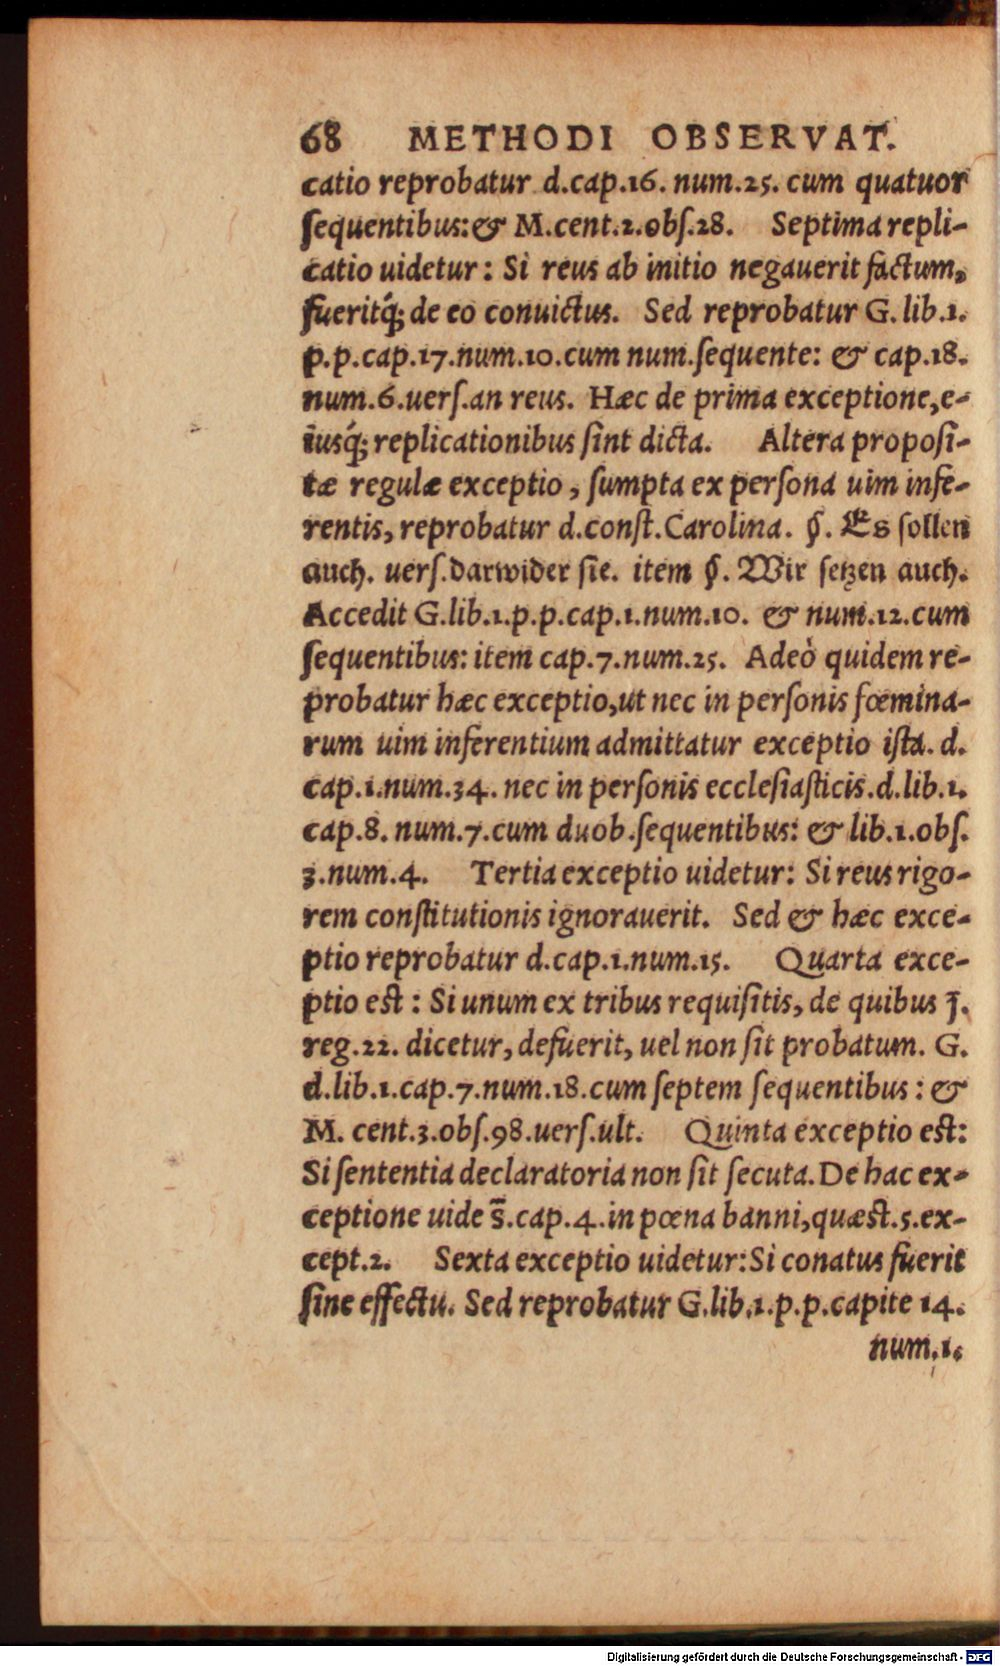 68 METHODI OBSERVAT.
catio reprobatur d.cap.16. num.25. cum quatuor
ſequentibus:& M.cent.2.obſ.28. Septima repli-
catio uidetur: Si reus ab initio negauerit factum,
fueritq́; de eo conuictus. Sed reprobatur G.lib.1.
p.p.cap.17.num.10.cum num.ſequente: & cap.18.
num.6.uerſ.an reus. Hæc de prima exceptione,e-
iusq́; replicationibus ſint dicta. Altera propoſi-
tæ regulæ exceptio, ſumpta ex perſona uim infe-
rentis, reprobatur d.conſt.Carolina. §. Es ſollen
auch. uerſ.darwider ſie. item §. Wir ſetzen auch.
Accedit G.lib.1.p.p.cap.1.num.10. & num.12.cum
ſequentibus: item cap.7.num.25. Adeò quidem re-
probatur hæc exceptio,ut nec in perſonis fœmina-
rum uim inferentium admittatur exceptio iſta. d.
cap.1.num.34. nec in perſonis eccleſiaſticis.d.lib.1.
cap.8. num.7.cum duob.ſequentibus: & lib.1.obſ.
3.num.4. Tertia exceptio uidetur: Si reus rigo-
rem conſtitutionis ignorauerit. Sed & hæc exce-
ptio reprobatur d.cap.1.num.15. Quarta exce-
ptio eſt: Si unum ex tribus requiſitis, de quibus J̄.
reg.22. dicetur, defuerit, uel non ſit probatum. G.
d.lib.1.cap.7.num.18.cum ſeptem ſequentibus: &
M. cent.3.obſ.98.uerſ.ult. Quinta exceptio eſt:
Si ſententia declaratoria non ſit ſecuta. De hac ex-
ceptione uide s̄.cap.4.in pœna banni,quæſt.5.ex-
cept.2. Sexta exceptio uidetur:Si conatus fuerit
ſine effectu. Sed reprobatur G.lib.1.p.p.capite 14.
num.1.
Digitalisierung gefördert durch die Deutsche Forschungsgemeinschaft - DFG